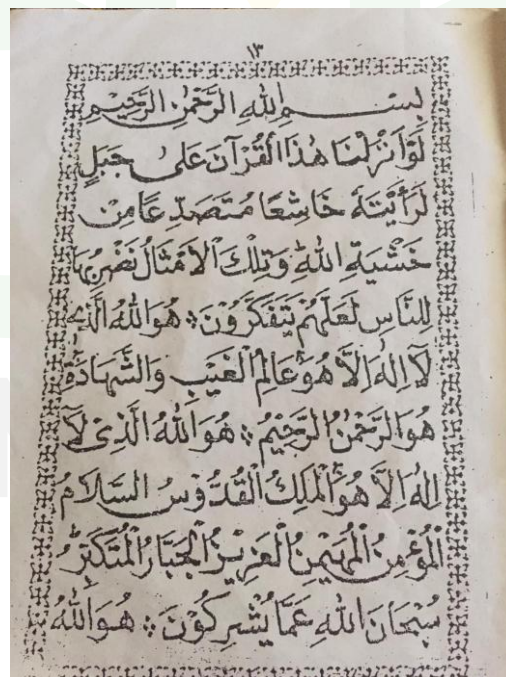 ١٣
بِسْمِ اللهِ الرَّحْمٰنِ الرَّحِيْمِ
لَوْ اَنْزَلْنَا هٰذَا الْقُرْآنَ عَلٰى جَبَلٍ
لَرَأَيْتَهُ خَاشِعًا مُتَصَدِّعًا مِنْ
خَشْيَةِ اللهِ وَتِلْكَ الْاَمْثَالُ نَضْرِبُهَا
لِلنَّاسِ لَعَلَّهُمْ يَتَفَكَّرُوْنَ ۞ هُوَ اللهُ الَّذِيْ
لَآ اِلٰهَ اِلَّا هُوَ عَالِمُ الْغَيْبِ وَالشَّهَادَةِ
هُوَ الرَّحْمٰنُ الرَّحِيْمُ ۞ هُوَ اللهُ الَّذِيْ لَآ
اِلٰهَ اِلَّا هُوَ الْمَلِكُ الْقُدُّوْسُ السَّلَامُ
الْمُؤْمِنُ الْمُهَيْمِنُ الْعَزِيْزُ الْجَبَّارُ الْمُتَكَبِّرُ
سُبْحَانَ اللهِ عَمَّا يُشْرِكُوْنَ ۞ هُوَ اللهُ